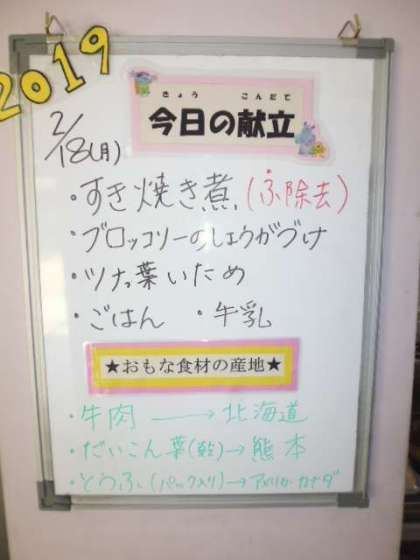 2019
きょう こんだて
今日の献立
2/18(月)
・すき焼き煮(ふ除去)
・ブロッコリーのしょうがづけ
・ツナっ葉いため
・ごはん ・牛乳
★おもな食材の産地★
・牛肉 → 北海道
・だいこん葉(乾)→熊本
・とうふ(パック入り)→アメリカ カナダ